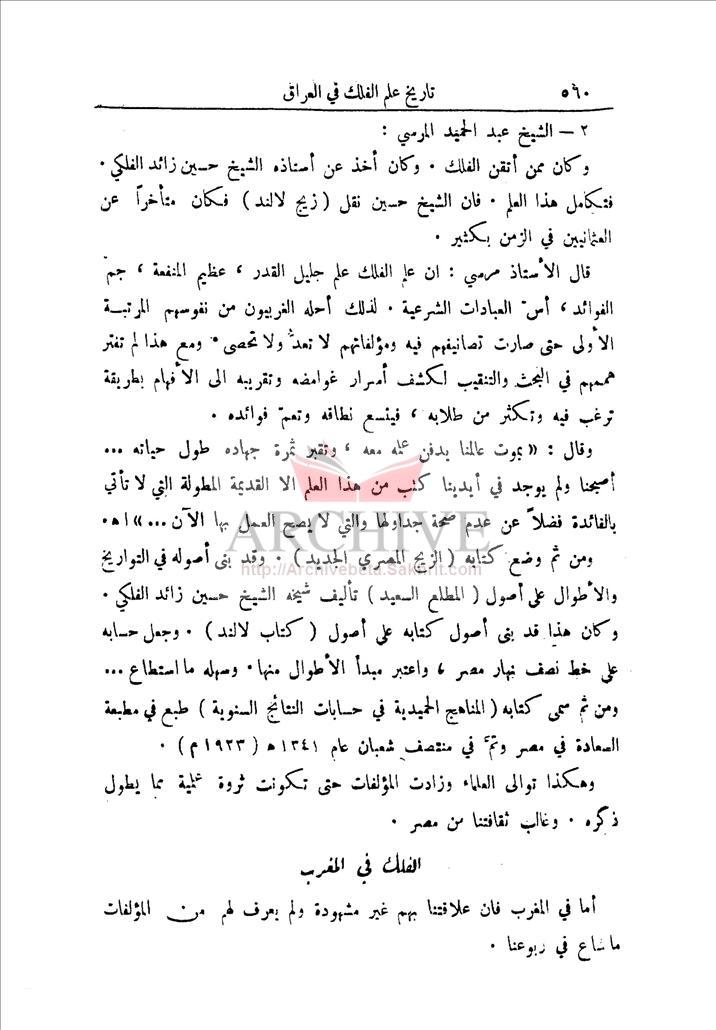 ٥٦٠ تاريخ علم الفلك في العراق
٢ — الشيخ عبد الحميد المرسي :
وكان ممن أتقن الفلك . وكان أخذ عن أستاذه الشيخ حسين زائد الفلكي .
فتكامل هذا العلم . فان الشيخ حسين نقل ( زيج لالند ) فكان متأخراً عن
العثمانيين في الزمن بكثير .
قال الأستاذ مرسي : ان علم الفلك علم جليل القدر ، عظيم المنفعة ، جم
الفوائد ، أسّ العبادات الشرعية . لذلك أحله الغربيون من نفوسهم المرتبة
الأولى حتى صارت تصانيفهم فيه ومؤلفاتهم لا تعدّ ولا تحصى . ومع هذا لم تفتر
هممهم في البحث والتنقيب لكشف أسرار غوامضه وتقريبه الى الأفهام بطريقة
ترغب فيه وتكثر من طلابه ، فيتسع نطاقه وتعمّ فوائده .
وقال : « يموت عالمنا يدفن علمه معه ، وتقبر ثمرة جهاده طول حياته ...
أصبحنا ولم يوجد في أيدينا كتب من هذا العلم الا القديمة المطولة التي لا تأتي
بالفائدة فضلاً عن عدم صحة جداولها والتي لا يصح العمل بها الآن ... » اه .
ومن ثم وضع كتابه ( الزيج المصري الجديد ) . وقد بنى أصوله في التواريخ
والأطوال على أصول ( المطلع السعيد ) تأليف شيخه الشيخ حسين زائد الفلكي .
وكان هذا قد بنى أصول كتابه على أصول ( كتاب لالند ) . وجعل حسابه
على خط نصف نهار مصر ، واعتبر مبدأ الأطوال منها . وسهله ما استطاع ...
ومن ثم سمى كتابه ( المناهج الحميدية في حسابات النتائج السنوية ) طبع في مطبعة
السعادة في مصر وتمّ في منتصف شعبان عام ١٣٤١ ه ( ١٩٢٣ م ) .
وهكذا توالى العلماء وزادت المؤلفات حتى تكونت ثروة علمية مما يطول
ذكره . وغالب ثقافتنا من مصر .
الفلك في المغرب
أما في المغرب فان علاقتنا بهم غير مشهودة ولم يعرف لهم من المؤلفات
ما شاع في ربوعنا .
ARCHIVE
http://Archivebeta.Sakhrit.com